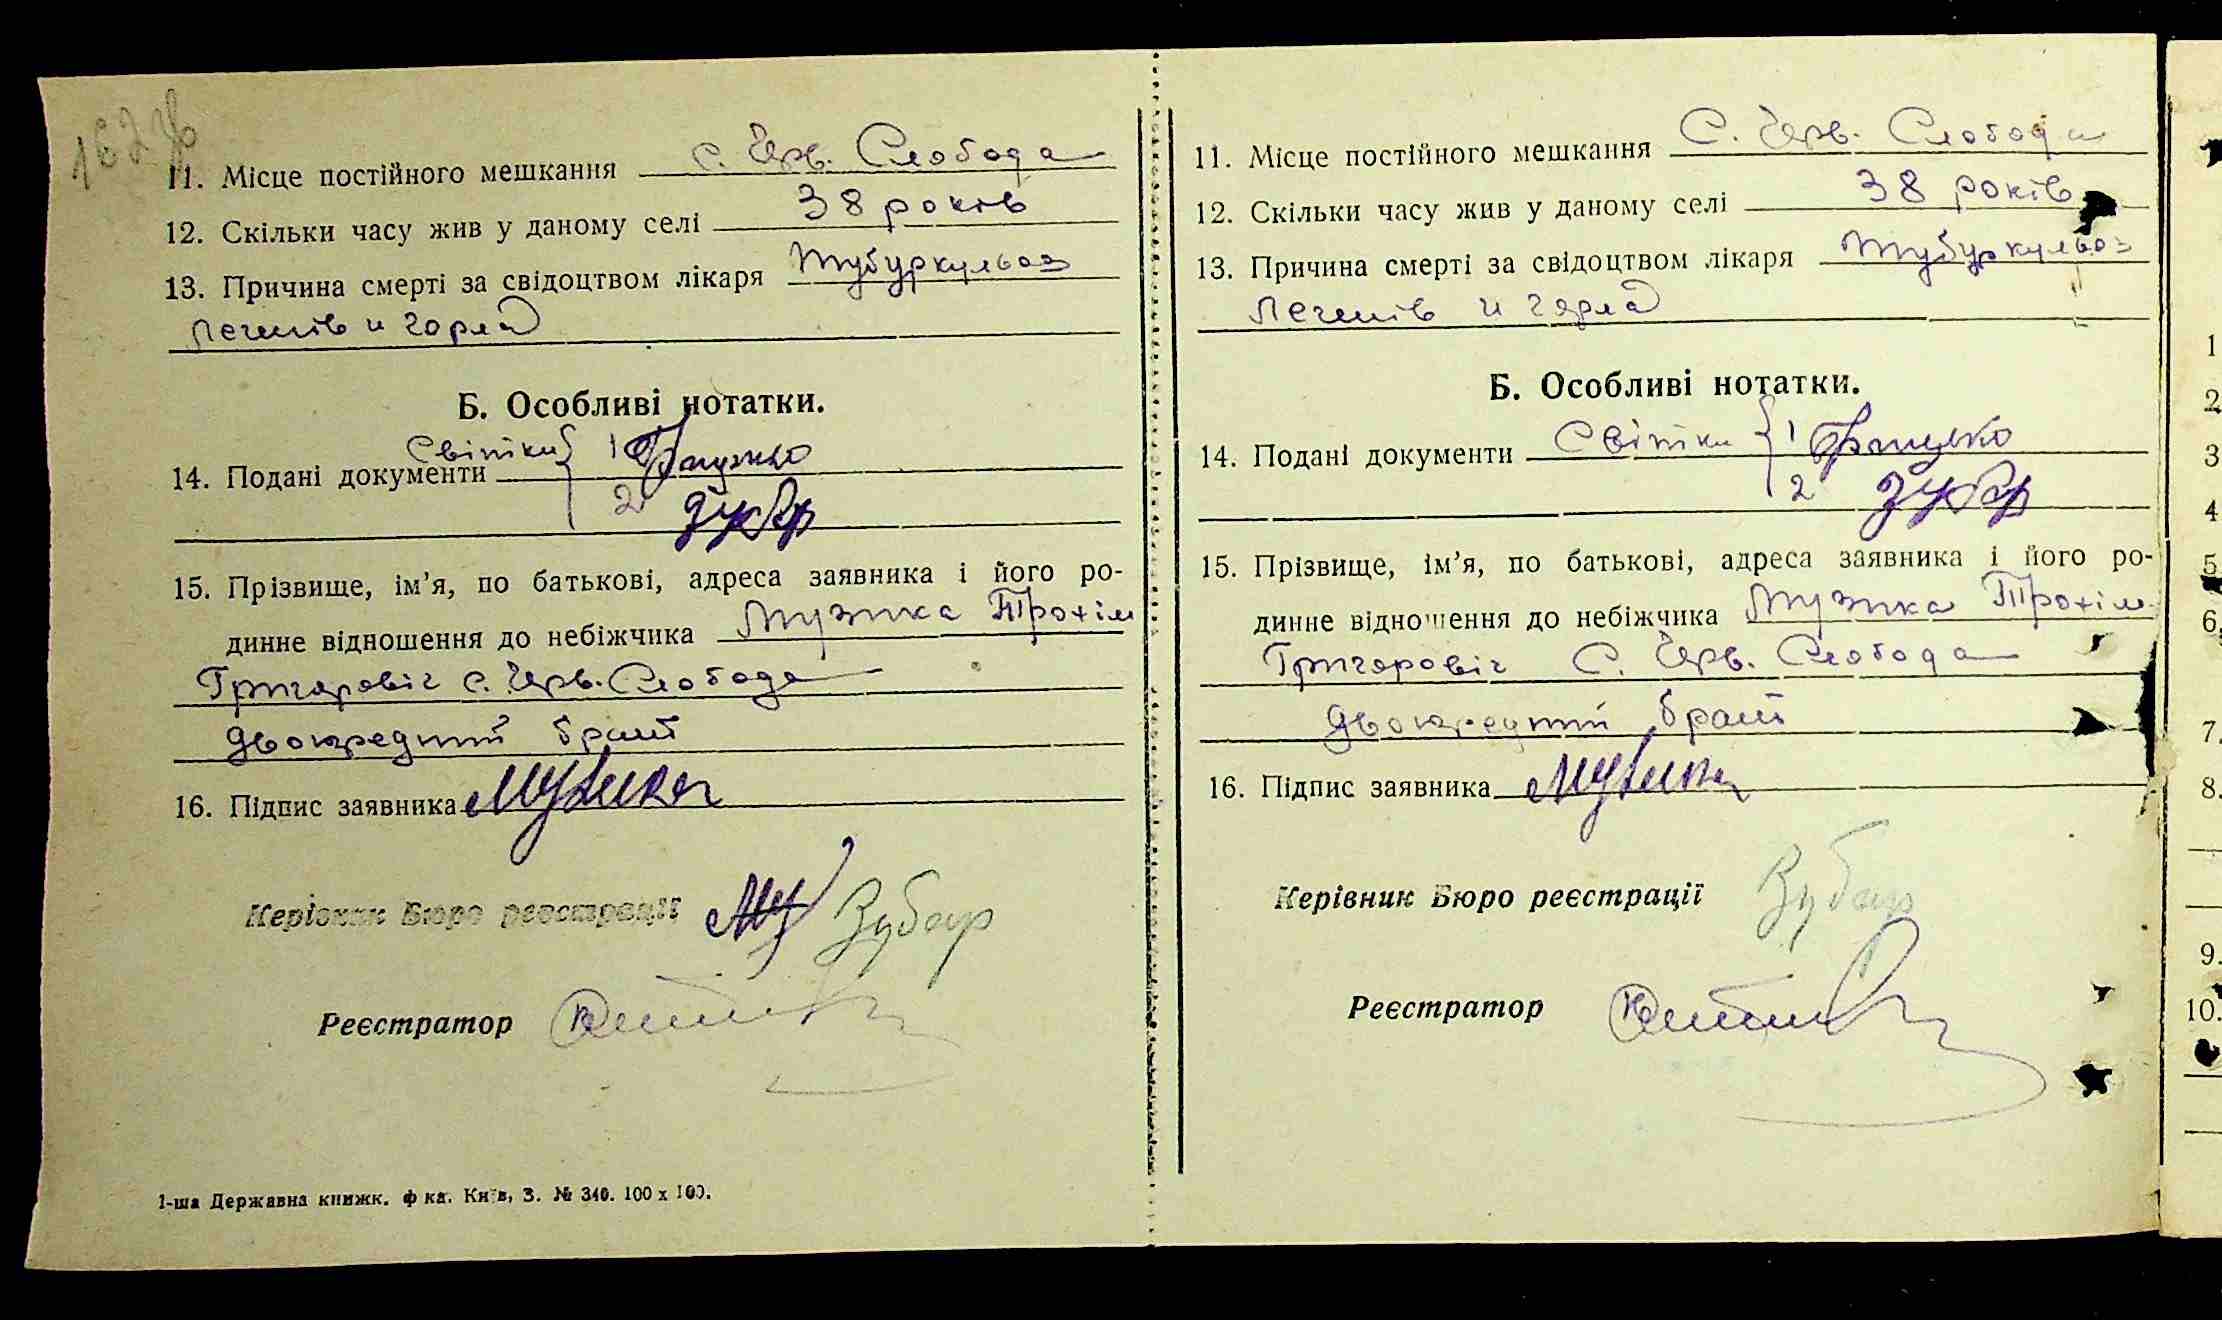 11. Місце постійного мешкання с. Черв. Слобода
12. Скільки часу жив у даному селі 38 років
13. Причина смерті за свідоцтвом лікаря тубуркульоз
легенів и горла
Б. Особливі нотатки.
14. Подані документи Свідки { 1
2 Зубар
15. Прізвище, ім'я, по батькові, адреса заявника і його ро-
динне відношення до небіжчика Музика Трохім
Григоровіч с. Черв. Слобода
двоюредний брат
16. Підпис заявника Музика
Керівник Бюро реєстрації Зубар
Реєстратор
1-ша Державна книжк. ф-ка. Київ, З. № 340. 100 х 100.
11. Місце постійного мешкання С. Черв. Слобода
12. Скільки часу жив у даному селі 38 років
13. Причина смерті за свідоцтвом лікаря тубуркульоз
легенів и горла
Б. Особливі нотатки.
14. Подані документи Свідки { 1 Грицько
2 Зубар
15. Прізвище, ім'я, по батькові, адреса заявника і його ро-
динне відношення до небіжчика Музика Трохім
Григоровіч С. Черв. Слобода
двоюредний брат
16. Підпис заявника Музика
Керівник Бюро реєстрації Зубар
Реєстратор
1
2
3
4
5
6.
7.
8.
9.
10.